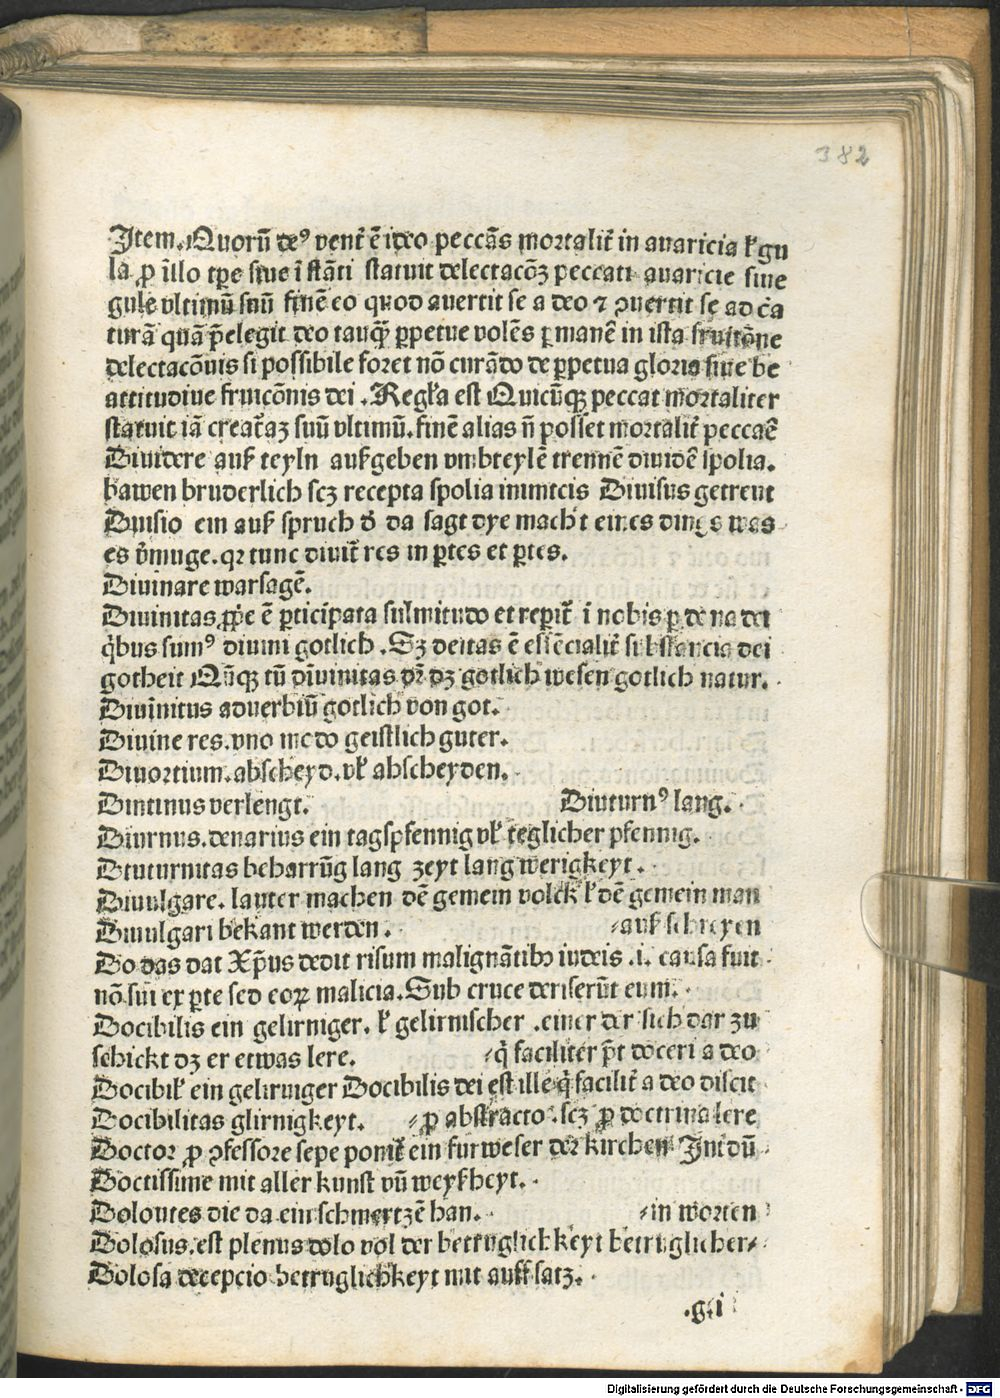 382
Item. Quorū deꝰ ventˀ ē ideo peccās mortalitˀ in auaricia ł gu
la ꝓ illo tꝑe siue ī stāti statuit delectacōꝫ peccati auaricie siue
gule vltimū suū finē eo quod auertit se a deo ⁊ ꝯuertit se ad cˀa
turā quā p̄elegit deo tauqꝫ ꝑpetue volēs ꝑmanē in ista fruitōne
delectacōnis si possibile foret nō curādo de ꝑpetua gloria siue be
attitudiue fruicōnis dei . Regła est Quicūqꝫ peccat mortaliter
statuit iā creatˀaꝫ suū vltimū. finē alias n̄ posset mortalitˀ peccaē
Diuidere auß teyln außgeben vmbteylē trennē diuidē spolia.
hawen bruderlich scꝫ recepta spolia inimicis Diuisus getrent
Diuisio ein auß spruch dˀ da sagt dye macht eines dings was
es vˀmuge. qꝛ tunc diuitˀ res in ꝑtes et ꝑtes.
Diuinare warsagē.
Diuinitas ꝓpˀe ē ꝑticipata silmitudo et reperitˀ i nobis ꝑ dona dei
qˀbus sumꝰ diuini gotlich . Sꝫ deitas ē essēcialitˀ sibstancia dei
gotheit Nūqꝫ tū diuinitas dꝛˀ dꝫ gotlich wesen gotlich natur.
Diuinitus aduerbiū gotlich von got.
Diuine res. vno modo geistlich guter.
Diuortium. abscheyd. vł abscheyden.
Dintinus verlengt. Diuturnꝰ lang.
Diurnus. denarius ein tagspfennig vł teglicher pfennig.
Dtuturnitas beharrūg lang zeyt lang werigkeyt .
Diuulgare. lauter machen dē gemein volck ł dē gemein man
Diuulgari bekant werden . auß schreyen
Do das dat Xp̄us dedit risum malignātibꝫ iudeis .i. causa fuit
nō sui ex ꝑte sed eoꝝ malicia. Sub cruce deriserūt eum.
Docibilis ein gelirniger. ł gelirnischer . einer der sich dar zu
schickt dꝫ er etwas lere. qˀ faciliter pˀt doceri a deo
Docibił ein gelirniger Docibilis dei est ille qˀ facilitˀ a deo discit
Docibilitas glirnigkeyt. ꝓ abstracto . scꝫ ꝓ doctrina lere
Doctor ꝓ ꝯfessore sepe ponitˀ ein furweser der kirchen Inłdū
Doctissime mit aller kunst vū weyßheyt.
Doloutes die da ein schmertzē han. in worten
Dolosus. est plenus dolo vol der betruglichkeyt betruglicher
Dolosa decepcio betruglichkeyt mit auffsatz.
.g.i
Digitalisierung gefördert durch die Deutsche Forschungsgemeinschaft - DFG